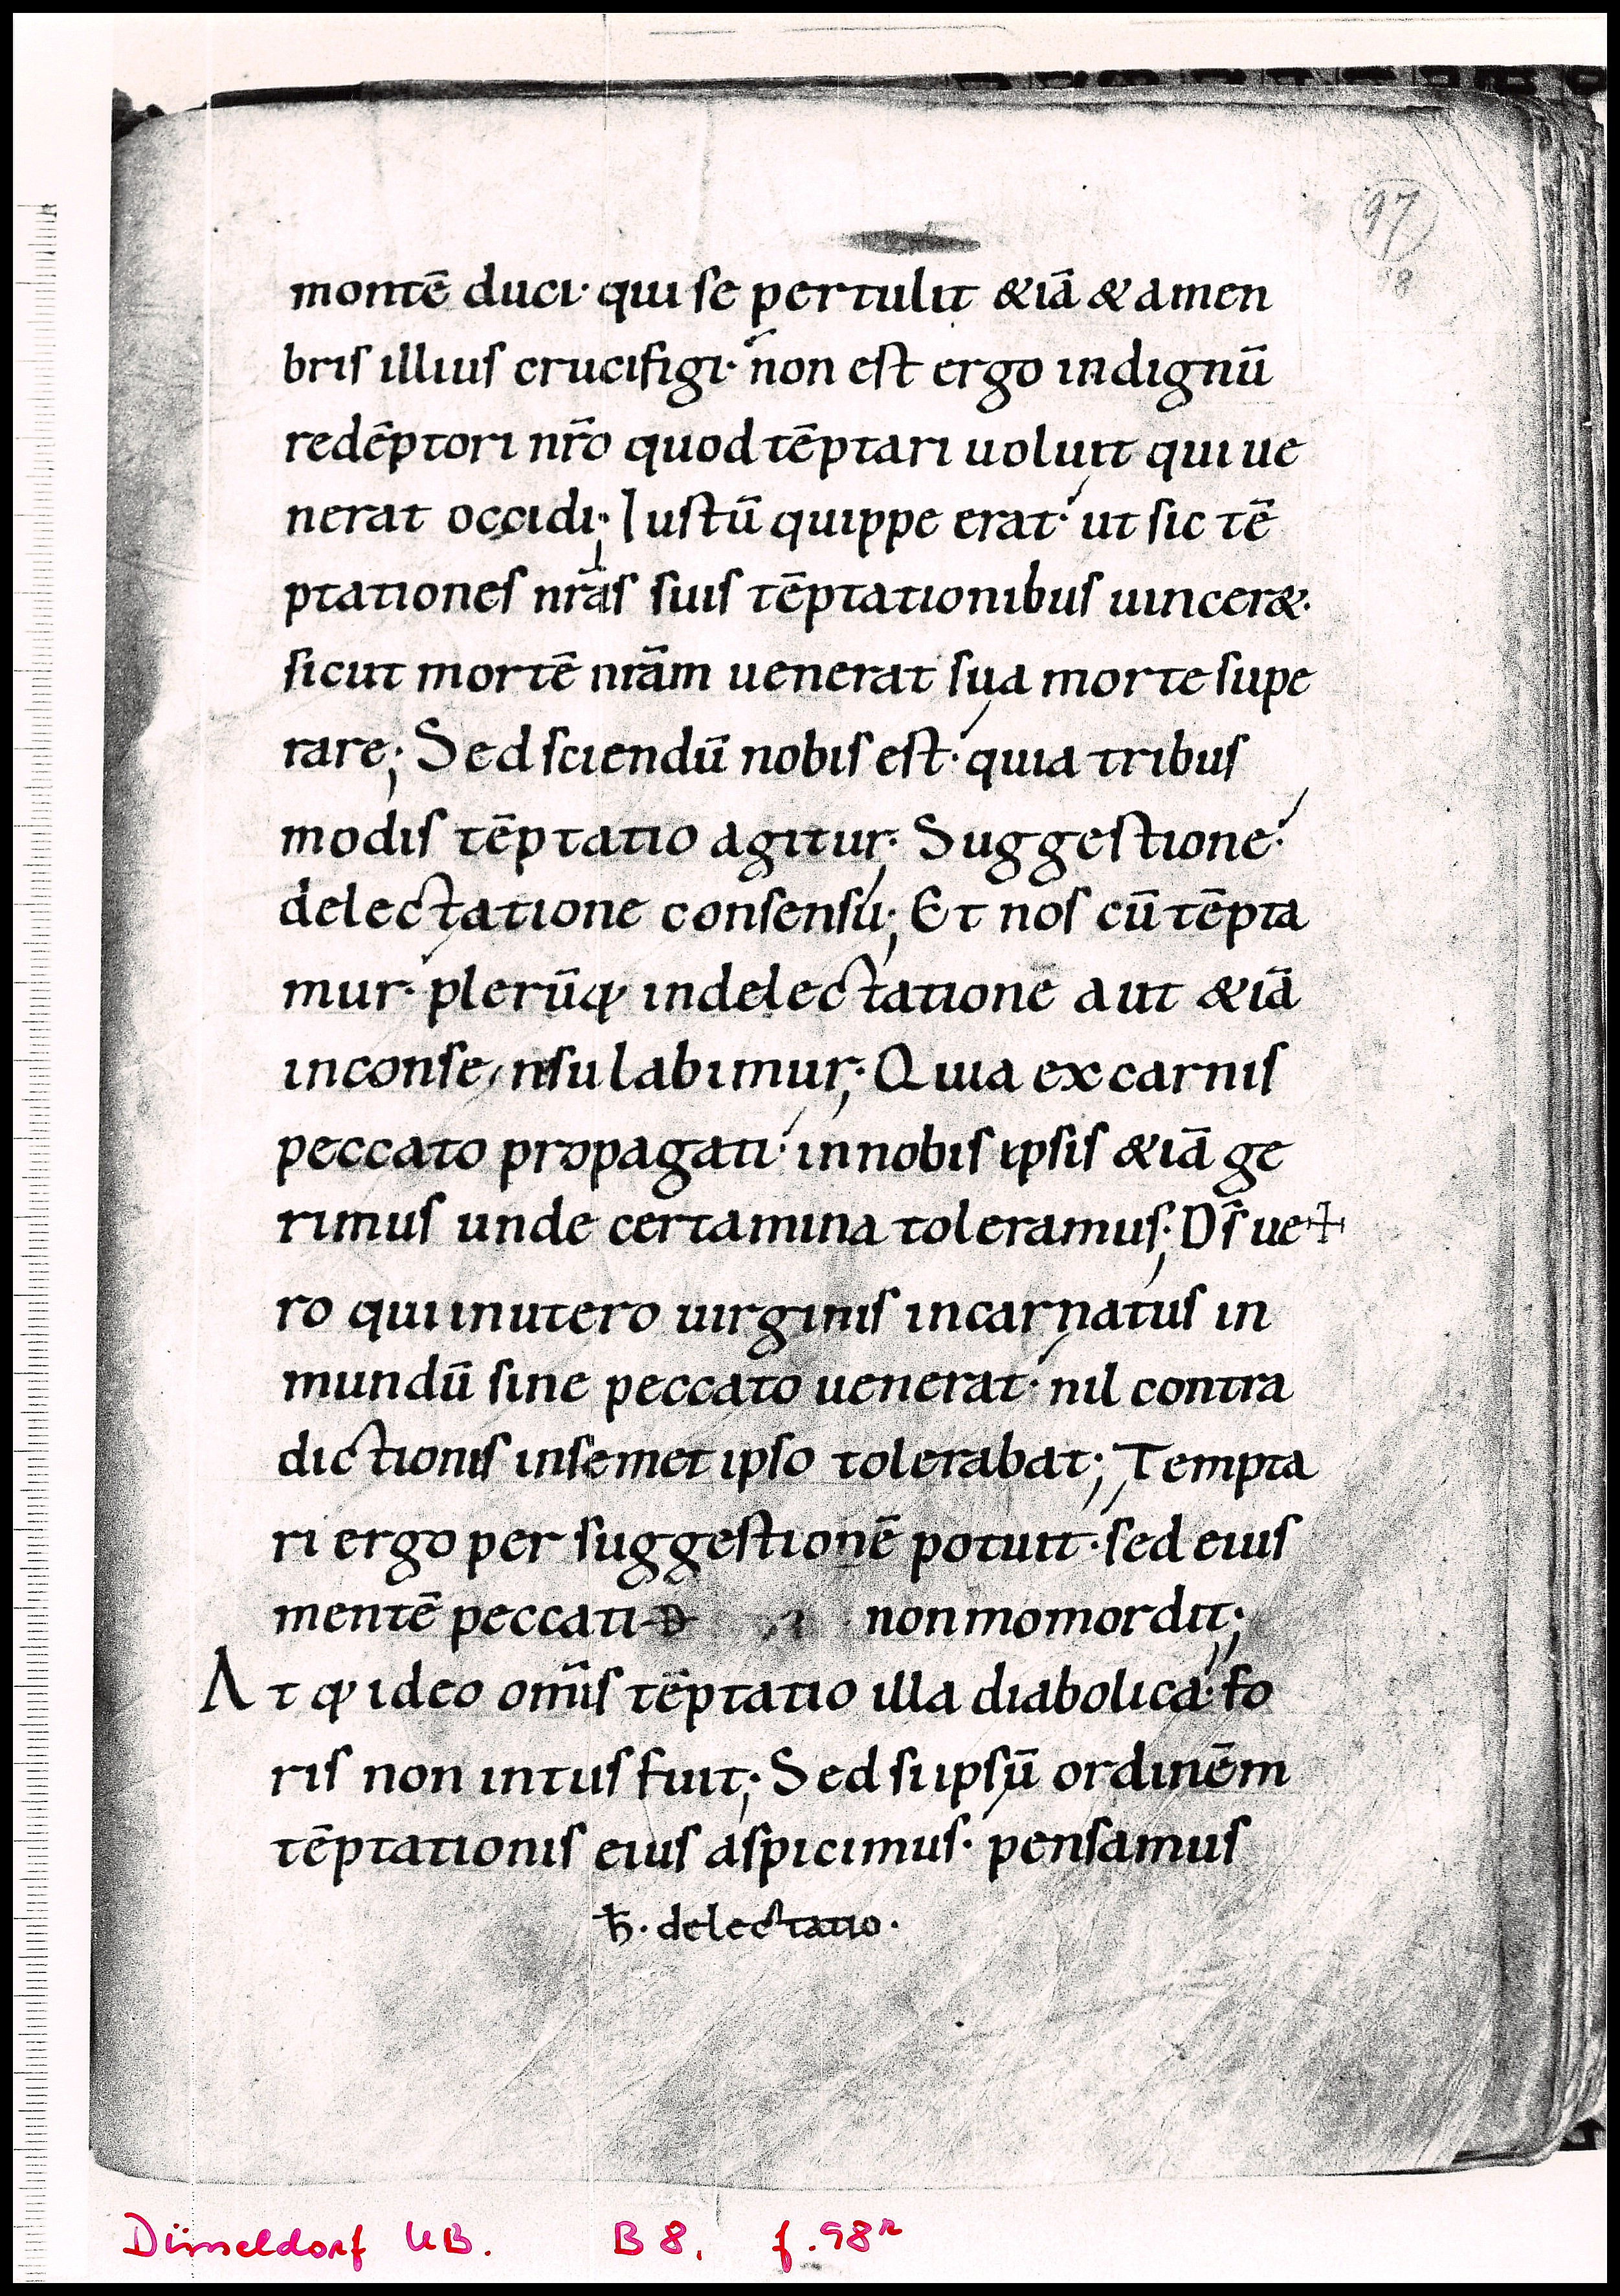 97
98
montē duci· qui se pertulit &iā & amen
bris illius crucifigi· non est ergo indignū
redēptori nr̄o quod tēptari uoluit qui ue
nerat occidi; Iustū quippe erat· ut sic tē
ptationes nr̄as suis tēptationibus uincer&·
sicut mortē nr̄am uenerat sua morte supe
rare; Sed sciendū nobis est· quia tribus
modis tēptatio agitur; Suggestione·
delectatione consensu; Et nos cū tēpta
mur· plerūq; in delectationē aut &iā
in conse nsu labimur; Quia ex carnis
peccato propagati· in nobis ipsis &iā ge
rimus unde certamina toleramus; D̄s ue
ro qui in utero uirginis incarnatus in
mundū sine peccato uenerat· nil contra
dictionis in semet ipso tolerabat; Tempta
ri ergo per suggestionē potuit· sed eius
mentē peccati non momordit;
Atq; ideo om̄is tēptatio illa diabolica· fo
ris non intus fuit; Sed si ipsū ordinēm
tēptationis eius aspicimus· pensamus
ħ· delectatio·
Düsseldorf UB. B 8, f. 98r